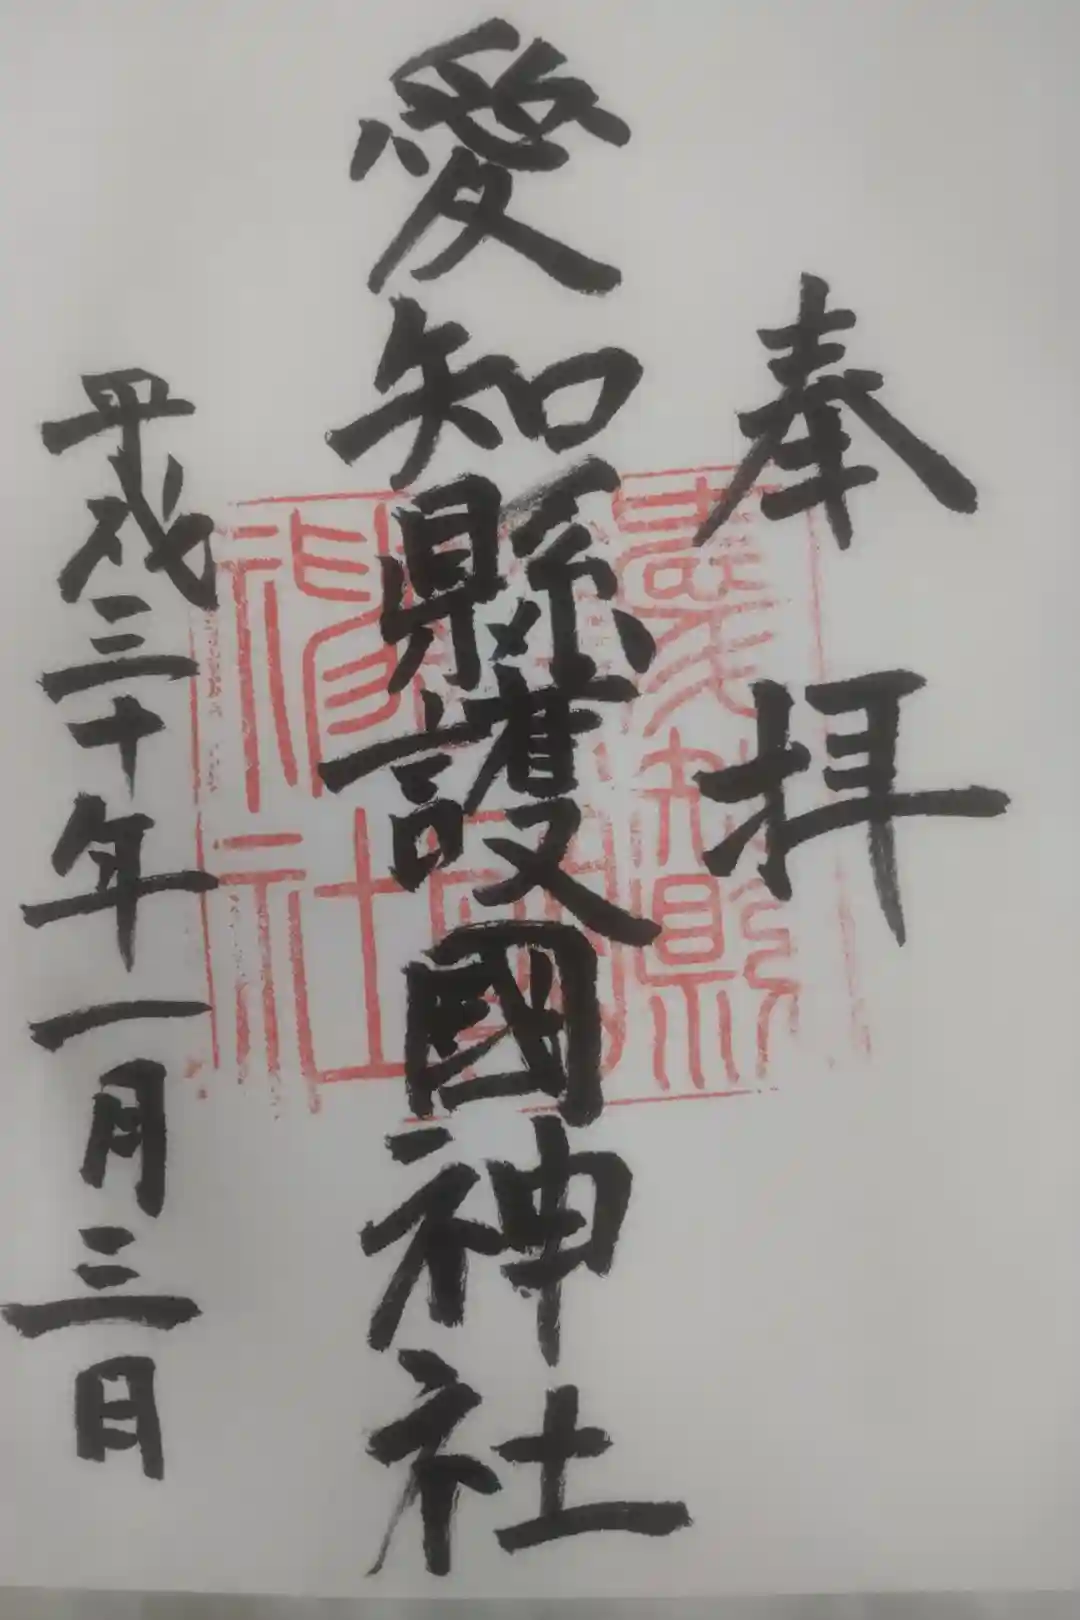 奉拝
愛知縣護國神社
平成三十年一月三日
愛知縣
護國
神社